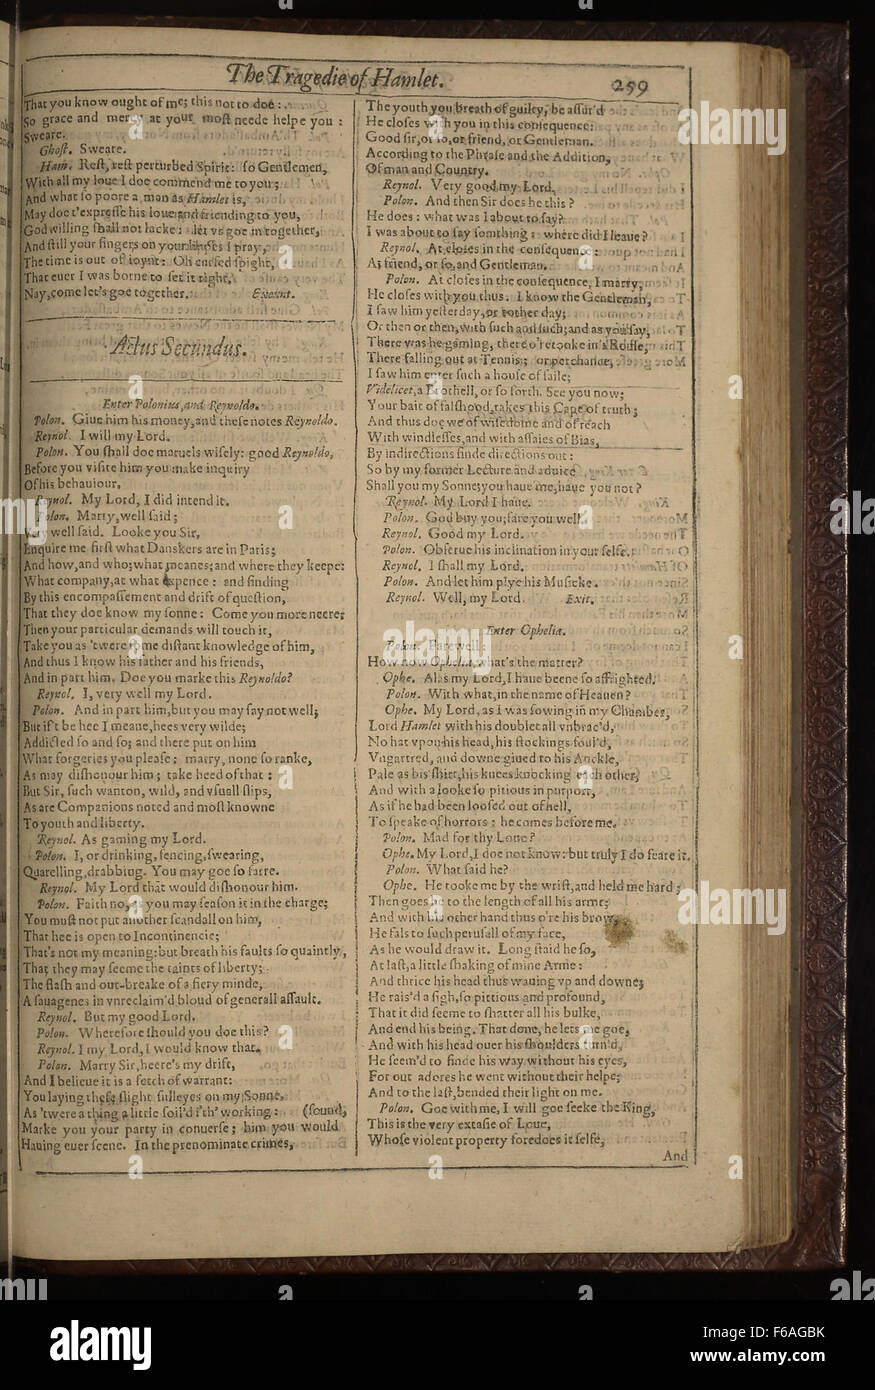 The Tragedie of Hamlet.
259
That you know ought of me; this not to doe :
So grace and mercy at your most neede helpe you :
Sweare.
Ghost. Sweare.
Ham. Rest, rest perturbed Spirit : so Gentlemen,
With all my loue I doe commend me to you ;
And what so poore a man as Hamlet is,
May doe t'expresse his loue and friending to you,
God willing shall not lacke : let vs goe in together,
And still your fingers on your lippes I pray,
The time is out of ioynt : Oh cursed spight,
That euer I was borne to set it right,
Nay, come let's goe together. Exeunt.
Actus Secundus.
Enter Polonius, and Reynoldo.
Polon. Giue him his money, and these notes Reynoldo.
Reynol. I will my Lord.
Polon. You shall doe maruels wisely: good Reynoldo,
Before you visite him you make inquiry
Of his behauiour.
Reynol. My Lord, I did intend it.
Polon. Marry, well said ;
Very well said. Looke you Sir,
Enquire me first what Danskers are in Paris;
And how, and who; what meanes; and where they keepe:
What company, at what expence : and finding
By this encompassement and drift of question,
That they doe know my sonne : Come you more neere;
Then your particular demands will touch it,
Take you as 'twere some distant knowledge of him,
And thus I know his father and his friends,
And in part him. Doe you marke this Reynoldo?
Reynol. I, very well my Lord.
Polon. And in part him, but you may say not well;
But if't be hee I meane, hees very wilde;
Addicted so and so; and there put on him
What forgeries you please : marry, none so ranke,
As may dishonour him ; take heed of that :
But Sir, such wanton, wild, and vsuall slips,
As are Companions noted and most knowne
To youth and liberty.
Reynol. As gaming my Lord.
Polon. I, or drinking, fencing, swearing,
Quarelling, drabbing. You may goe so farre.
Reynol. My Lord that would dishonour him.
Polon. Faith no, as you may season it in the charge;
You must not put another scandall on him,
That hee is open to Incontinencie;
That's not my meaning: but breath his faults so quaintly,
That they may seeme the taints of liberty;
The flash and out-breake of a fiery minde,
A sauagenes in vnreclaim'd bloud of generall assault.
Reynol. But my good Lord.
Polon. Wherefore should you doe this?
Reynol. I my Lord, I would know that.
Polon. Marry Sir, heere's my drift,
And I belieue it is a fetch of warrant:
You laying these slight sulleyes on my Sonne,
As 'twere a thing a little soil'd i'th' working : (sound,
Marke you your party in conuerse ; him you would
Hauing euer seene. In the prenominate crimes,
The youth you breath of guilty, be assur'd
He closes with you in this consequence:
Good sir, or so, or friend, or Gentleman.
According to the Phrase and the Addition,
Of man and Country.
Reynol. Very good my Lord.
Polon. And then Sir does he this ?
He does : what was I about to say?
I was about to say somthing : where did I leaue?
Reynol. At closes in the consequence :
At friend, or so, and Gentleman.
Polon. At closes in the consequence, I marry,
He closes with you thus. I know the Gentleman,
I saw him yesterday, or tother day;
Or then or then, with such and such; and as you say,
There was he gaming, there o'retooke in's Rouse,
There falling out at Tennis; or perchance,
I saw him enter such a house of saile;
Videlicet, a Brothell, or so forth. See you now;
Your bait of falshood, takes this Cape of truth;
And thus doe we of wisedome and of reach
With windlesses, and with assaies of Bias,
By indirections finde directions out :
So by my former Lecture and aduice
Shall you my Sonne; you haue me, haue you not ?
Reynol. My Lord I haue.
Polon. God buy you; fare you well.
Reynol. Good my Lord.
Polon. Obserue his inclination in your selfe.
Reynol. I shall my Lord.
Polon. And let him plye his Musicke.
Reynol. Well, my Lord. Exit.
Enter Ophelia.
Polon. Farewell :
How now Ophelia, what's the matter?
Ophe. Alas my Lord, I haue beene so affrighted.
Polon. With what, in the name of Heauen ?
Ophe. My Lord, as I was sowing in my Chamber,
Lord Hamlet with his doublet all vnbrac'd,
No hat vpon his head, his stockings foul'd,
Vngartred, and downe giued to his Anckle,
Pale as his shirt, his knees knocking each other,
And with a looke so pitious in purport,
As if he had been loosed out of hell,
To speake of horrors : he comes before me.
Polon. Mad for thy Loue ?
Ophe. My Lord, I doe not know: but truly I do feare it.
Polon. What said he?
Ophe. He tooke me by the wrist, and held me hard ;
Then goes he to the length of all his arme;
And with his other hand thus o're his brow,
He fals to such perusall of my face,
As he would draw it. Long staid he so,
At last, a little shaking of mine Arme :
And thrice his head thus wauing vp and downe;
He rais'd a sigh, so pittious and profound,
That it did seeme to shatter all his bulke,
And end his being. That done, he lets me goe,
And with his head ouer his shoulders turn'd,
He seem'd to finde his way without his eyes,
For out adores he went without their helpe;
And to the last, bended their light on me.
Polon. Goe with me, I will goe seeke the King,
This is the very extasie of Loue,
Whose violent property foredoes it selfe,
And
alamy stock photo
F6AGBK
www.alamy.com